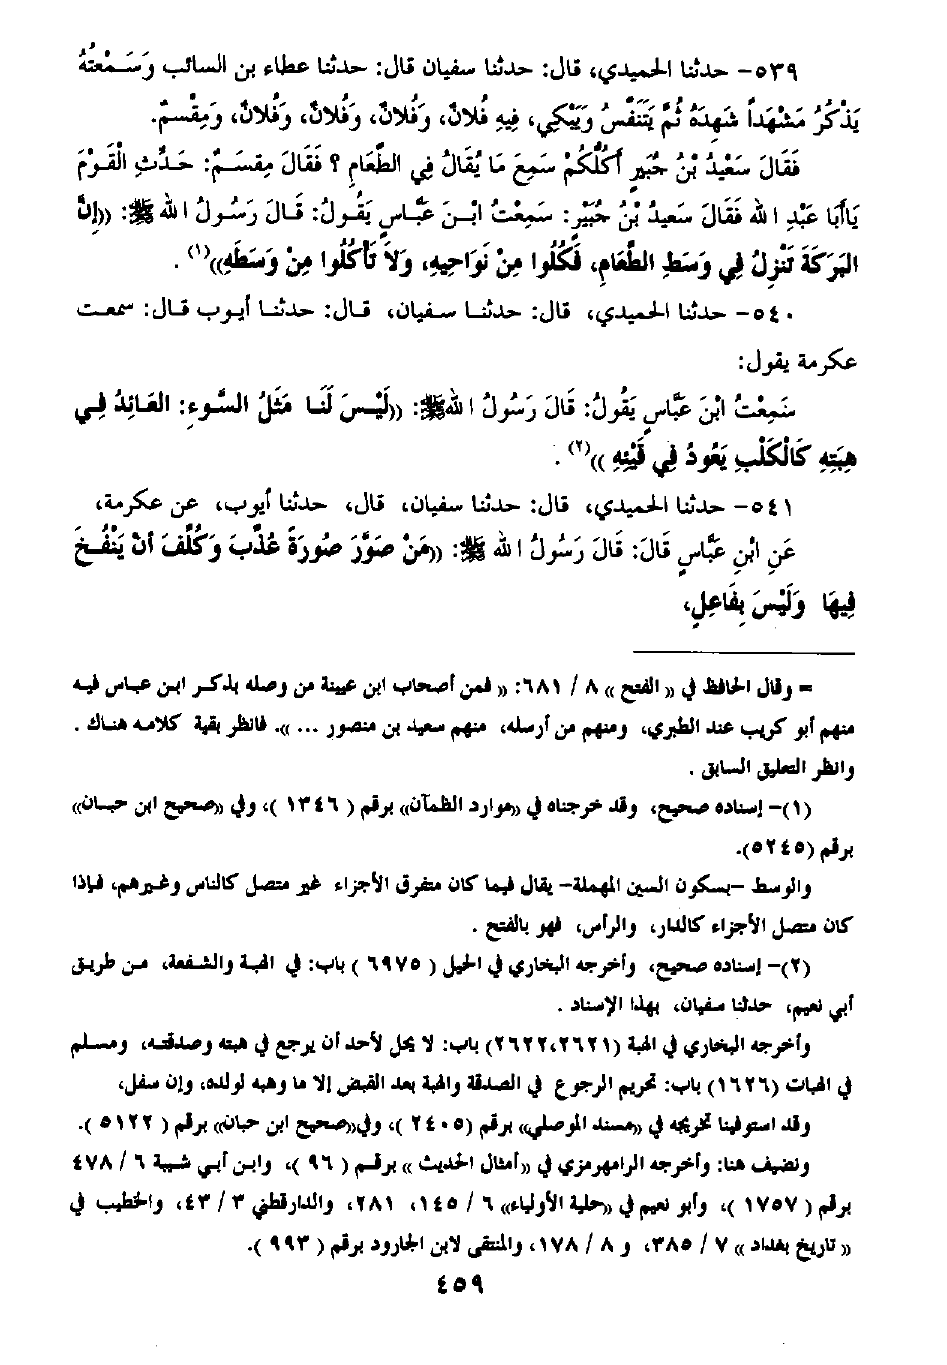 ٥٣٩- حدثنا الحميدي، قال: حدثنا سفيان قال: حدثنا عطاء بن السائب وَسَمْعتُهُ
يَذْكُرُ مَشْهَداً شَهِدَهُ ثُمَّ يَتَنَفَّسُ وَيَبْكِي، فِيهِ فُلانٌ، وَفُلانٌ، وَفُلانٌ، وَفُلانٌ، وَمِقْسمٌ.
فَقَالَ سَعِيْدُ بْنُ جُبَيرٍ أَكُلُّكُمْ سَمِعَ مَا يُقَالُ فِي الطَّعَامِ ؟ فَقَالَ مِقسَمٌ: حَدِّثِ الْقَوْمَ
يَاأَبَا عَبْدِ اللهِ فَقَالَ سَعيدُ بْنُ جُبَيْرٍ: سَمِعْتُ ابْنَ عَبَّاسٍ يَقُولُ: قَالَ رَسُولُ اللهِ ﷺ: ((إِنَّ
البَرَكَةَ تَنْزِلُ فِي وَسَطِ الطَّعَامِ، فَكُلُوا مِنْ نَوَاحِيهِ، وَلاَ تَأْكُلُوا مِنْ وَسَطِهِ))(١) .
٥٤٠- حدثنا الحميدي، قال: حدثنا سفيان، قال: حدثنا أيوب قال: سمعت
عكرمة يقول:
سَمِعْتُ ابْنَ عَبَّاسٍ يَقُولُ: قَالَ رَسُولُ اللهِ ﷺ: ((لَيْسَ لَنَا مَثَلُ السَّوءِ: العَائِدُ فِي
هِبَتِهِ كَالْكَلْبِ يَعُودُ فِي قَيْئِهِ ))(٢) .
٥٤١- حدثنا الحميدي، قال: حدثنا سفيان، قال، حدثنا أيوب، عن عكرمة،
عَنِ ابْنِ عَبَّاسٍ قَالَ: قَالَ رَسُولُ اللهِ ﷺ: ((مَنْ صَوَّرَ صُورَةً عُذِّبَ وَكُلِّفَ أنْ يَنْفُخَ
فِيهَا وَلَيْسَ بِفَاعِلٍ،
= وقال الحافظ في (( الفتح )) ٨ / ٦٨١: (( فمن أصحاب ابن عيينة من وصله بذكر ابن عباس فيه
منهم أبو كريب عند الطبري، ومنهم من أرسله، منهم سعيد بن منصور ... )). فانظر بقية كلامه هناك .
وانظر التعليق السابق .
(١)- إسناده صحيح، وقد خرجناه في ((موارد الظمآن)) برقم ( ١٣٤٦ )، وفي ((صحيح ابن حبان))
برقم (٥٢٤٥).
والوسط -بسكون السين المهملة- يقال فيما كان متفرق الأجزاء غير متصل كالناس وغيرهم، فإذا
كان متصل الأجزاء كالدار، والرأس، فهو بالفتح .
(٢)- إسناده صحيح، وأخرجه البخاري في الحيل ( ٦٩٧٥ ) باب: في الهبة والشفعة، من طريق
أبي نعيم، حدثنا سفيان، بهذا الإسناد .
وأخرجه البخاري في الهبة (٢٦٢١،٢٦٢٢) باب: لا يحل لأحد أن يرجع في هبته وصدقته، ومسلم
في الهبات (١٦٢٦) باب: تحريم الرجوع في الصدقة والهبة بعد القبض إلا ما وهبه لولده، وإن سفل،
وقد استوفينا تخريجه في ((مسند الموصلي)) برقم (٢٤٠٥ )، وفي((صحيح ابن حبان)) برقم ( ٥١٢٢ ).
ونضيف هنا: وأخرجه الرامهرمزي في ((أمثال الحديث )) برقم ( ٩٦ )، وابن أبي شيبة ٦ / ٤٧٨
برقم ( ١٧٥٧ )، وأبو نعيم في ((حلية الأولياء)) ٦ / ١٤٥، ٢٨١، والدارقطني ٣ / ٤٣، والخطيب في
(( تاريخ بغداد )) ٧ / ٣٨٥، و ٨ / ١٧٨، والمنتقى لابن الجارود برقم ( ٩٩٣ ).
٤٥٩